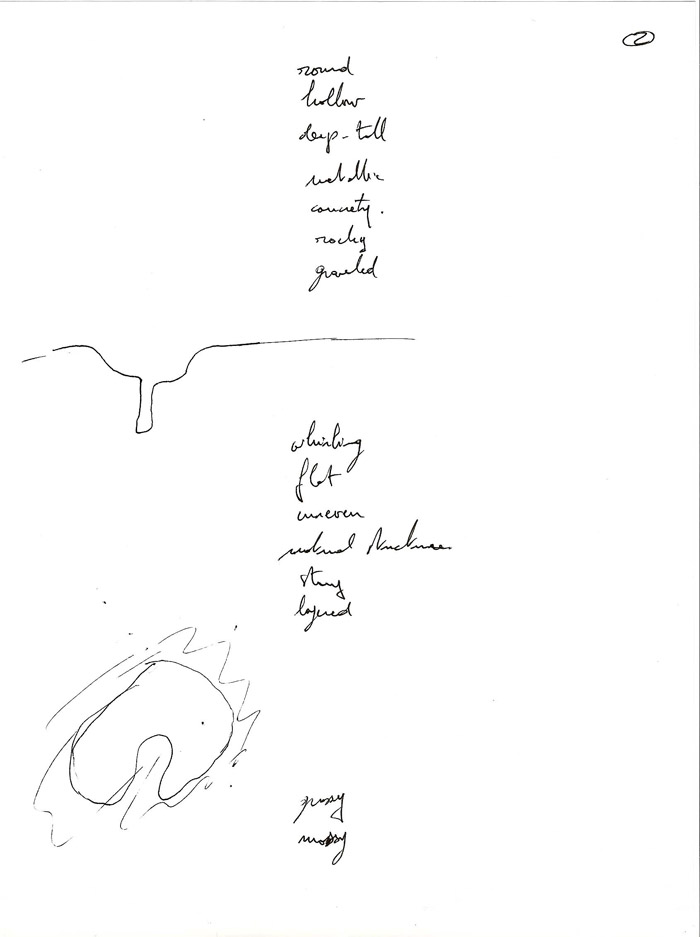 2
round
hollow
deep-tall
metallic
concrety.
rocky
graveled
whirling
flat
uneven
natural structures
layered
mossy